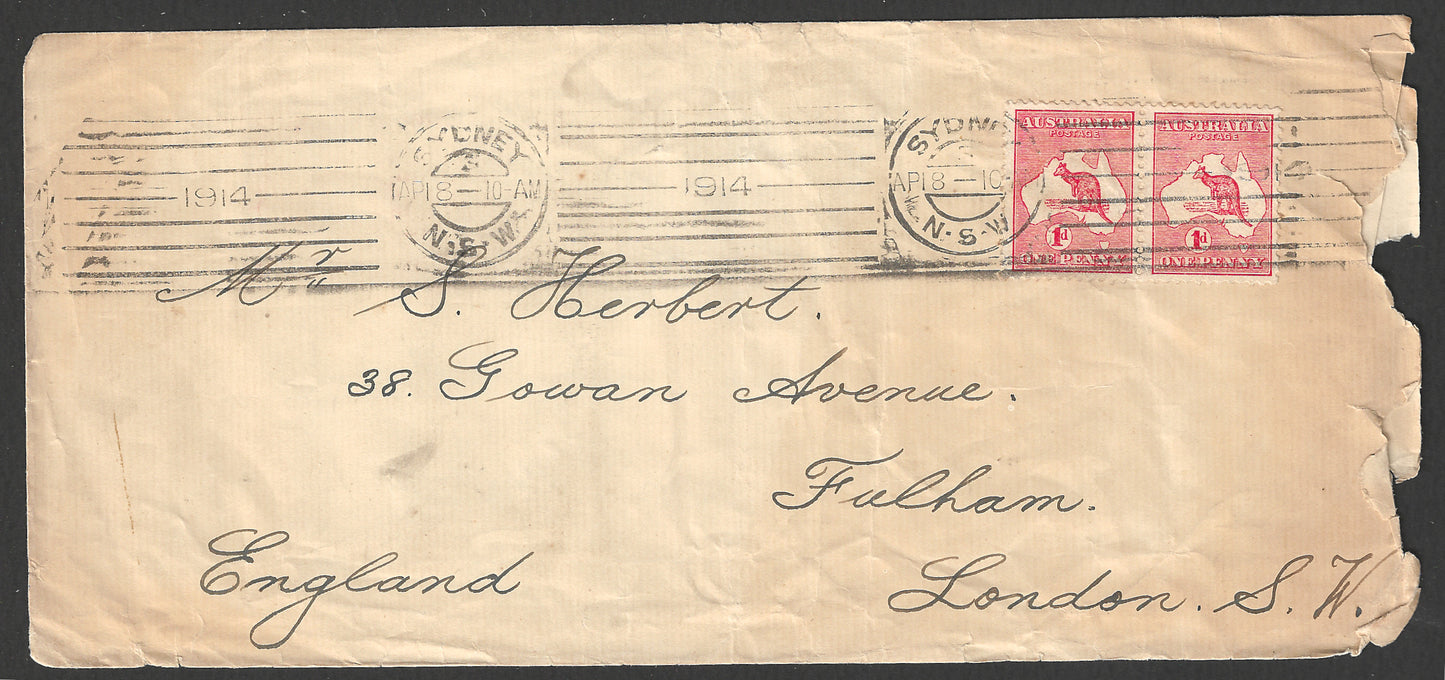 1914
SYDNEY
AP18 — 10-AM
N.S.W.
1914
SYDNEY
AP18 — 10
N.S.W
AUSTRALIA
POSTAGE
1d
ONE PENNY
AUSTRALIA
POSTAGE
1d
ONE PENNY
1914
Mr S. Herbert.
38. Gowan Avenue.
Fulham.
London. S. W.
England